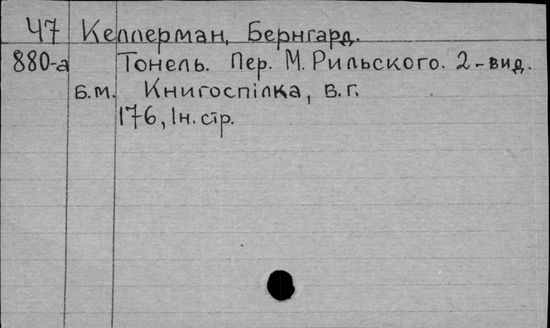 Ч7 Келлерман, Бернгард.
880-а Тонель. Пер. М. Рильского. 2-вид.
Б.м. Книгоспілка, Б.г.
176, Ін. стр.